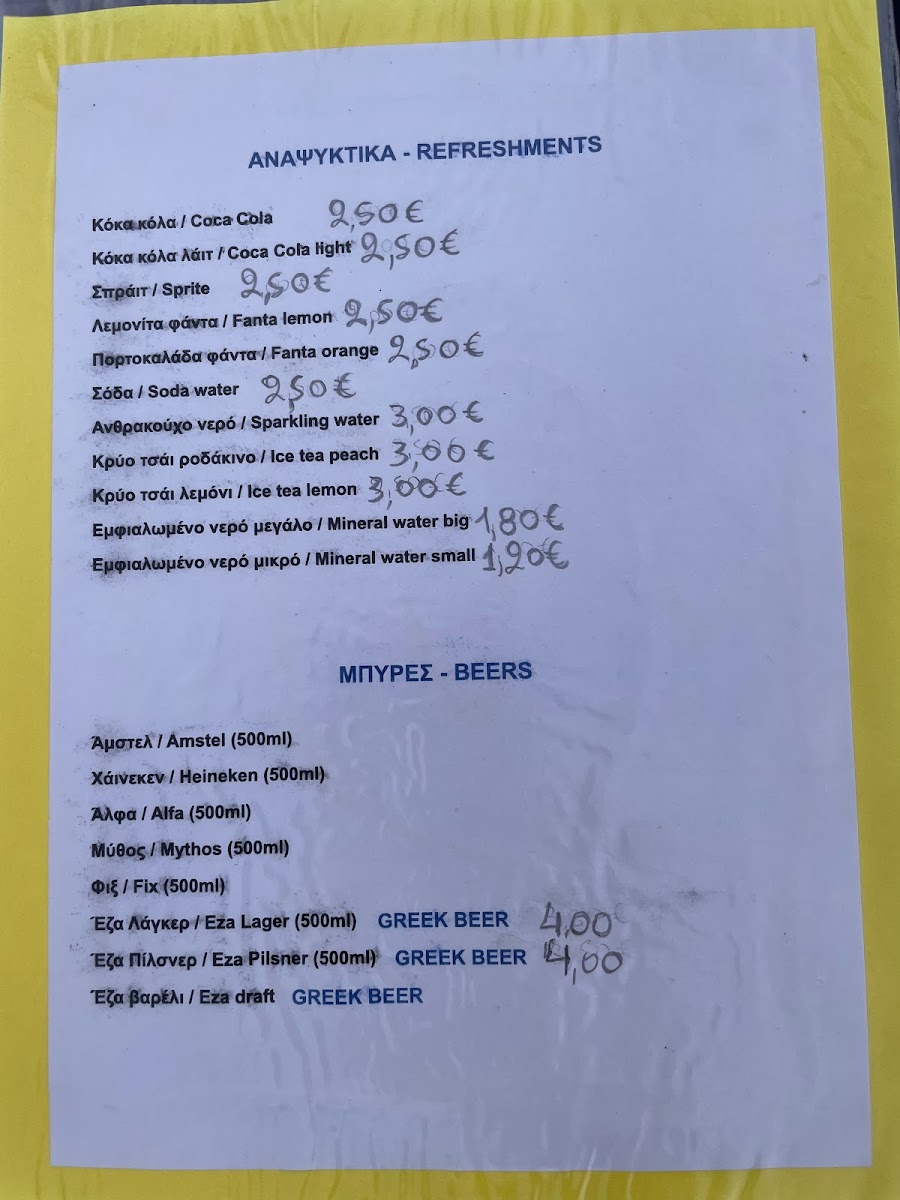 ΑΝΑΨΥΚΤΙΚΑ - REFRESHMENTS
Κόκα κόλα / Coca Cola 2,50€
Κόκα κόλα λάιτ / Coca Cola light 2,50€
Σπράιτ / Sprite 2,50€
Λεμονίτα φάντα / Fanta lemon 2,50€
Πορτοκαλάδα φάντα / Fanta orange 2,50€
Σόδα / Soda water 2,50€
Ανθρακούχο νερό / Sparkling water 3,00€
Κρύο τσάι ροδάκινο / Ice tea peach 3,00€
Κρύο τσάι λεμόνι / Ice tea lemon 3,00€
Εμφιαλωμένο νερό μεγάλο / Mineral water big 1,80€
Εμφιαλωμένο νερό μικρό / Mineral water small 1,20€
ΜΠΥΡΕΣ - BEERS
Άμστελ / Amstel (500ml)
Χάινεκεν / Heineken (500ml)
Άλφα / Alfa (500ml)
Μύθος / Mythos (500ml)
Φιξ / Fix (500ml)
Έζα Λάγκερ / Eza Lager (500ml) GREEK BEER 4,00
Έζα Πίλσνερ / Eza Pilsner (500ml) GREEK BEER 4,00
Έζα βαρέλι / Eza draft GREEK BEER